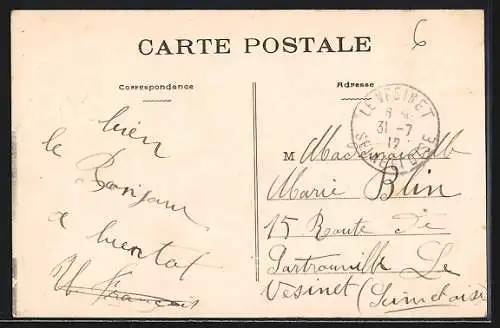 CARTE POSTALE
6
Correspondance
Adresse
LE VESINET
31-7
17
SEINE-ET-OISE
bien
le Bonjour
a bientot
François
M Mademoiselle
Marie Blin
15 Route de
Sartrouville Le
Vesinet (Seineloise)